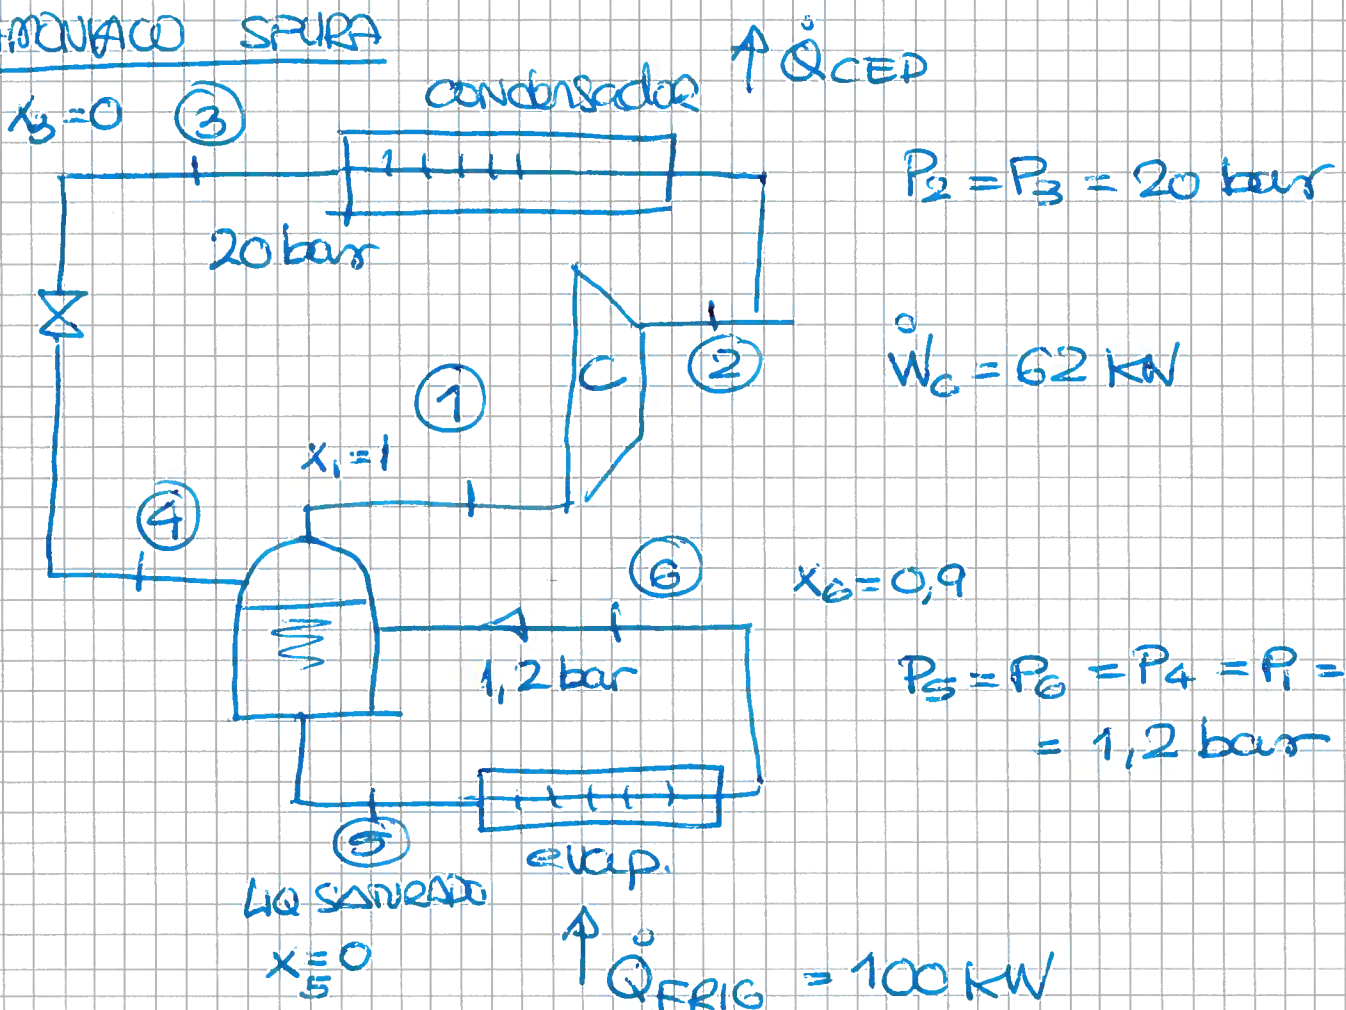 MONIACO SPURA
Q̇CED
condensador
x₃=0
③
P₂ = P₃ = 20 bar
20 bar
C
②
Ẇc = 62 KW
①
x₁=1
④
⑥
x₆=0,9
1,2 bar
P₅ = P₆ = P₄ = P₁ =
= 1,2 bar
⑤
evap.
LIQ SATURADO
x₅=0
Q̇FRIG = 100 KW